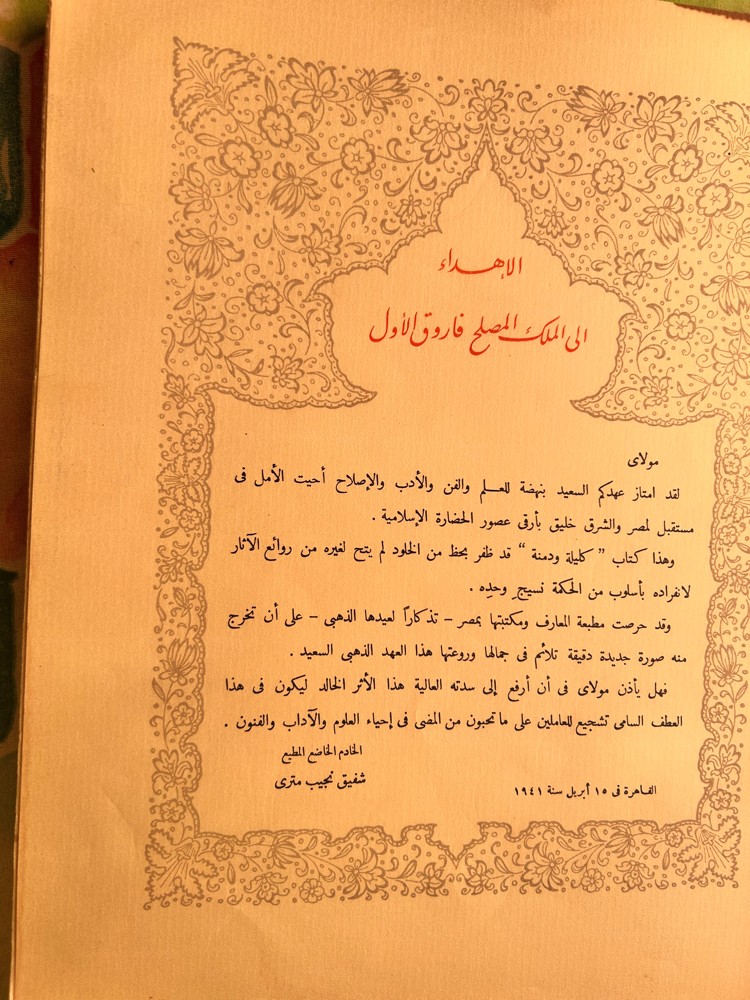 الإهداء
الى الملك المصلح فاروق الأول
مولاى
لقد امتاز عهدكم السعيد بنهضة للعلم والفن والأدب والإصلاح أحيت الأمل فى
مستقبل لمصر والشرق خليق بأرقى عصور الحضارة الإسلامية .
وهذا كتاب " كليلة ودمنة " قد ظفر بحظ من الخلود لم يتح لغيره من روائع الآثار
لانفراده بأسلوب من الحكمة نسيجِ وحدِه .
وقد حرصت مطبعة المعارف ومكتبتها بمصر – تذكاراً لعيدها الذهبى – على أن تخرج
منه صورة جديدة دقيقة تلائم فى جمالها وروعتها هذا العهد الذهبى السعيد .
فهل يأذن مولاى فى أن أرفع إلى سدته العالية هذا الأثر الخالد ليكون فى هذا
العطف السامى تشجيع للعاملين على ما تحبون من المضى فى إحياء العلوم والآداب والفنون .
الخادم الخاضع المطيع
شفيق نجيب مترى
القاهرة فى ١٥ أبريل سنة ١٩٤١